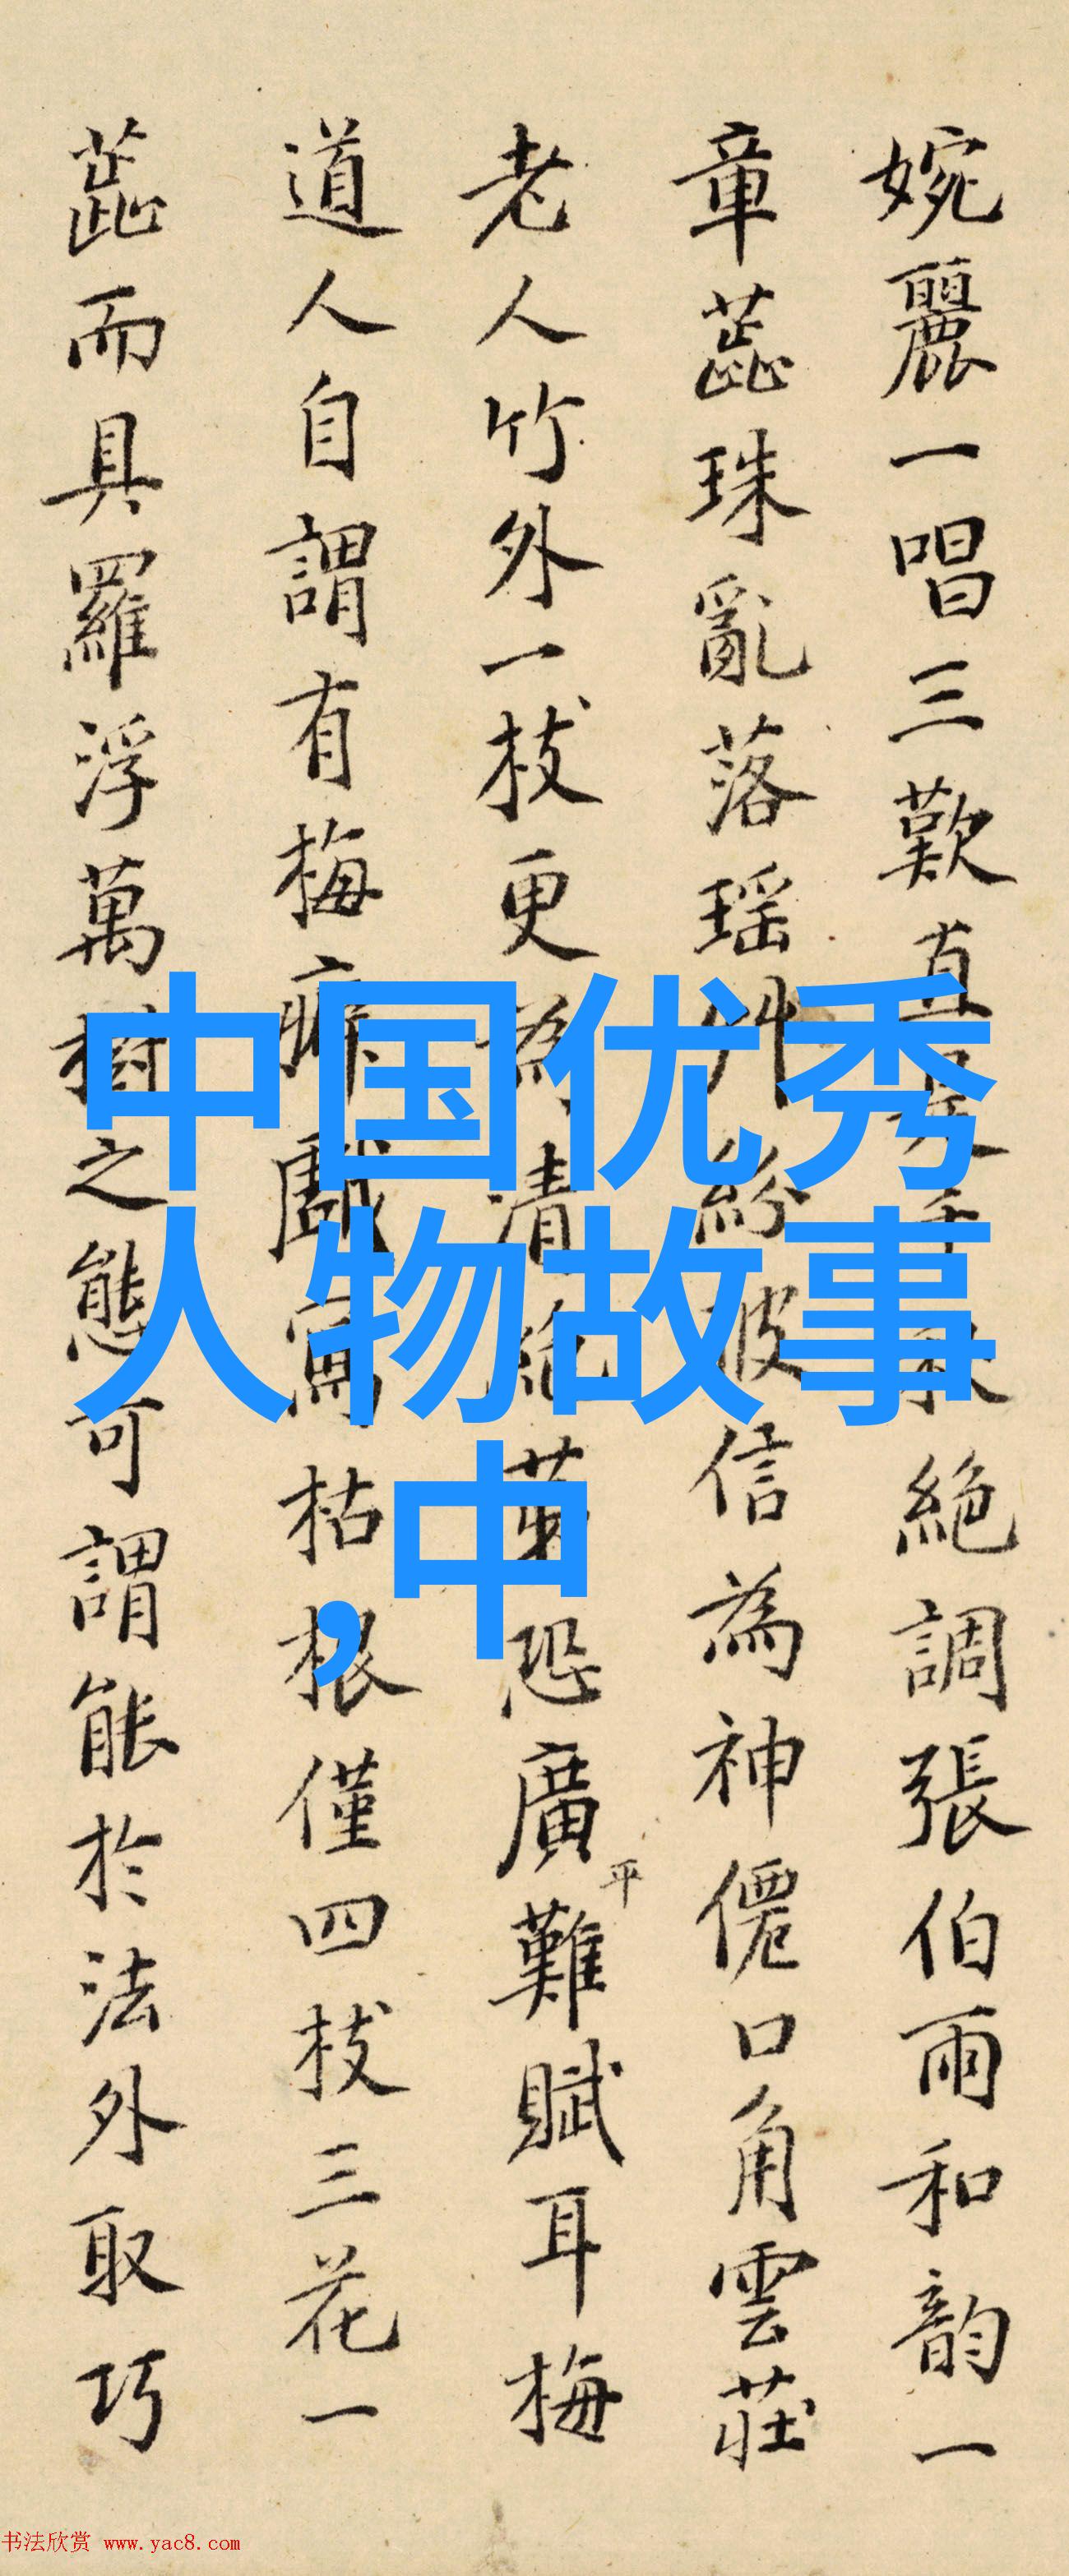 婉麗一唱三歎直是千秋絕調張伯雨和韵一
章蕋珠亂落瑶艸紛披信為神僊口角雲莊
老人竹外一枝更為清絕第恐廣平難賦耳梅
道人自謂有梅癖戲寫枯根僅四枝三花一
蕋而具羅浮萬樹之態可謂能於法外取巧
中国优秀
人物故事
,中
书法欣赏 www.yac8.com